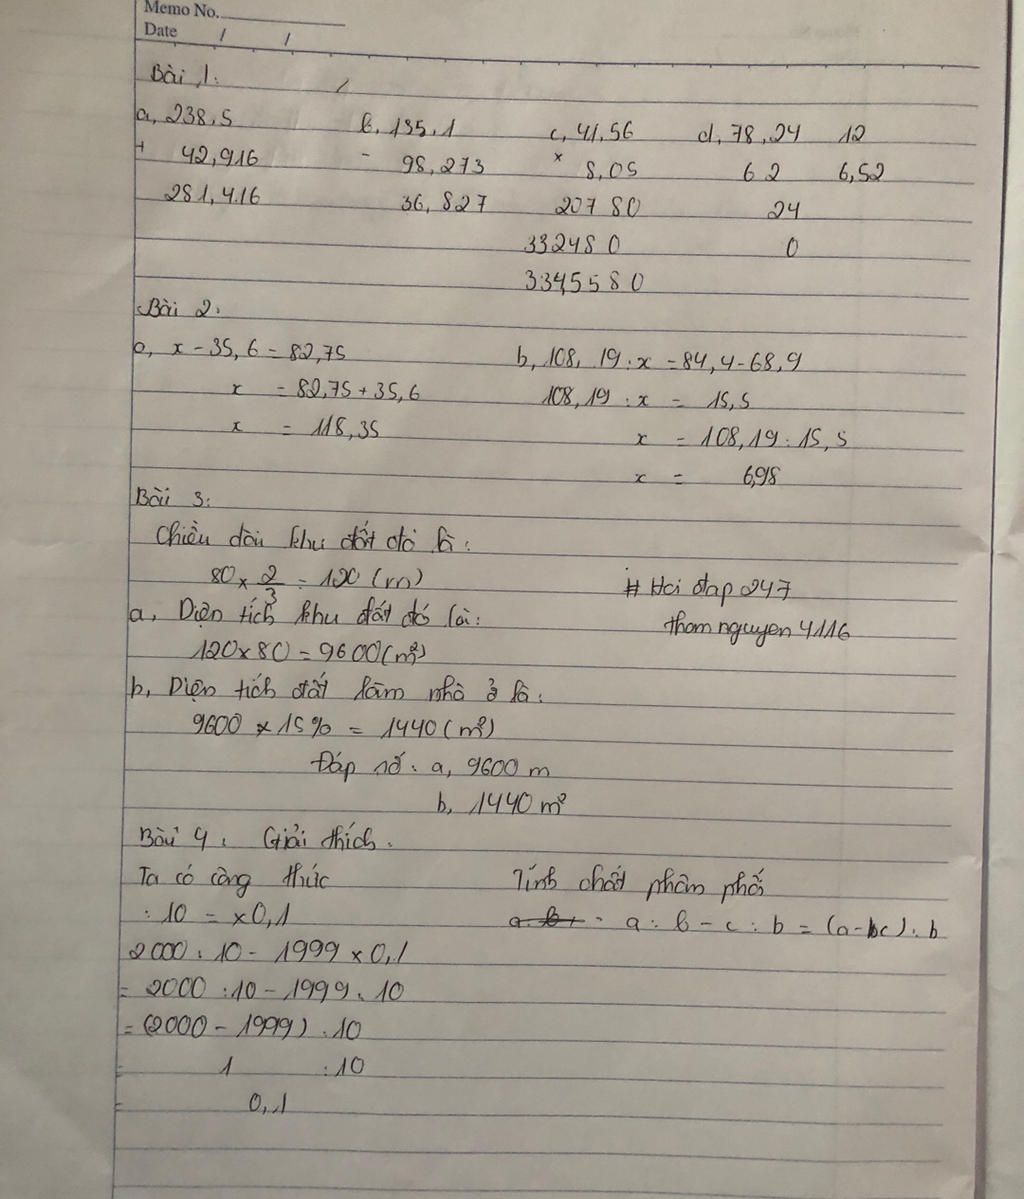 Memo No.
Date / /
Bài 1:
a, 238,5 b, 135,1 c, 41,56 d, 78,24 12
+ 42,916 - 98,273 x 8,05 6 2 6,52
281,416 36,827 207 80 24
33248 0 0
334,55 8 0
Bài 2:
a, x - 35,6 = 82,75 b, 108,19 : x = 84,4 - 68,9
x = 82,75 + 35,6 108,19 : x = 15,5
x = 118,35 x = 108,19 : 15,5
x = 6,98
Bài 3:
Chiều dài khu đất đó là:
80 x 2/3 = 120 (m) # Hoi đap 247
a, Diện tích khu đất đó là: thamnguyen4116
120 x 80 = 9600 (m²)
b, Diện tích đất làm nhà ở là:
9600 x 15% = 1440 (m²)
Đáp số: a, 9600 m
b, 1440 m²
Bài 4: Giải thích.
Ta có công thức Tính chất phân phối
: 10 = x 0,1 a : b - c : b = (a - bc) : b
2000 : 10 - 1999 x 0,1
= 2000 : 10 - 1999 : 10
= (2000 - 1999) : 10
= 1 : 10
= 0,1